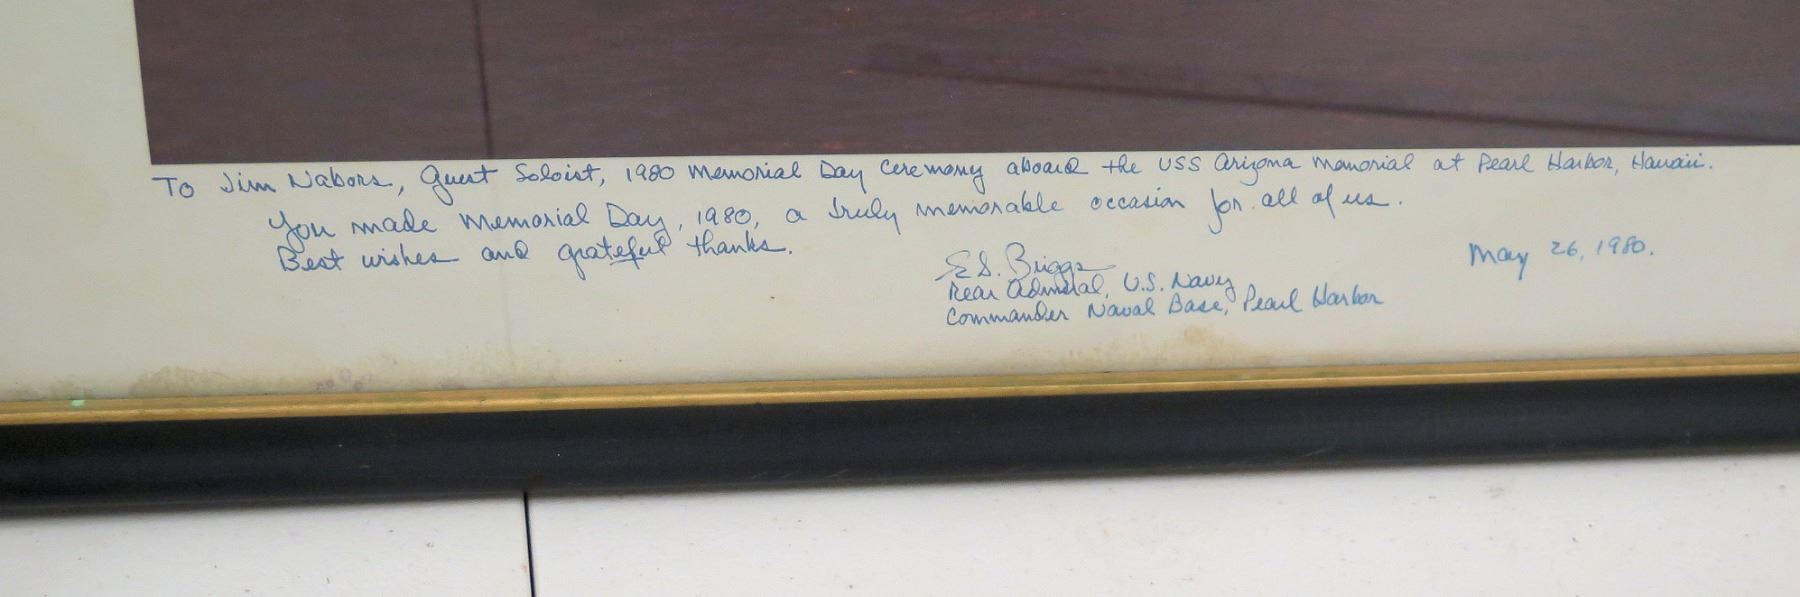 To Jim Nabors, Guest Soloist, 1980 Memorial Day Ceremony aboard the USS Arizona Memorial at Pearl Harbor, Hawaii.
You made Memorial Day, 1980, a truly memorable occasion for all of us.
Best wishes and grateful thanks.
E.S. Briggs
May 26, 1980.
Rear Admiral, U.S. Navy
Commander Naval Base, Pearl Harbor